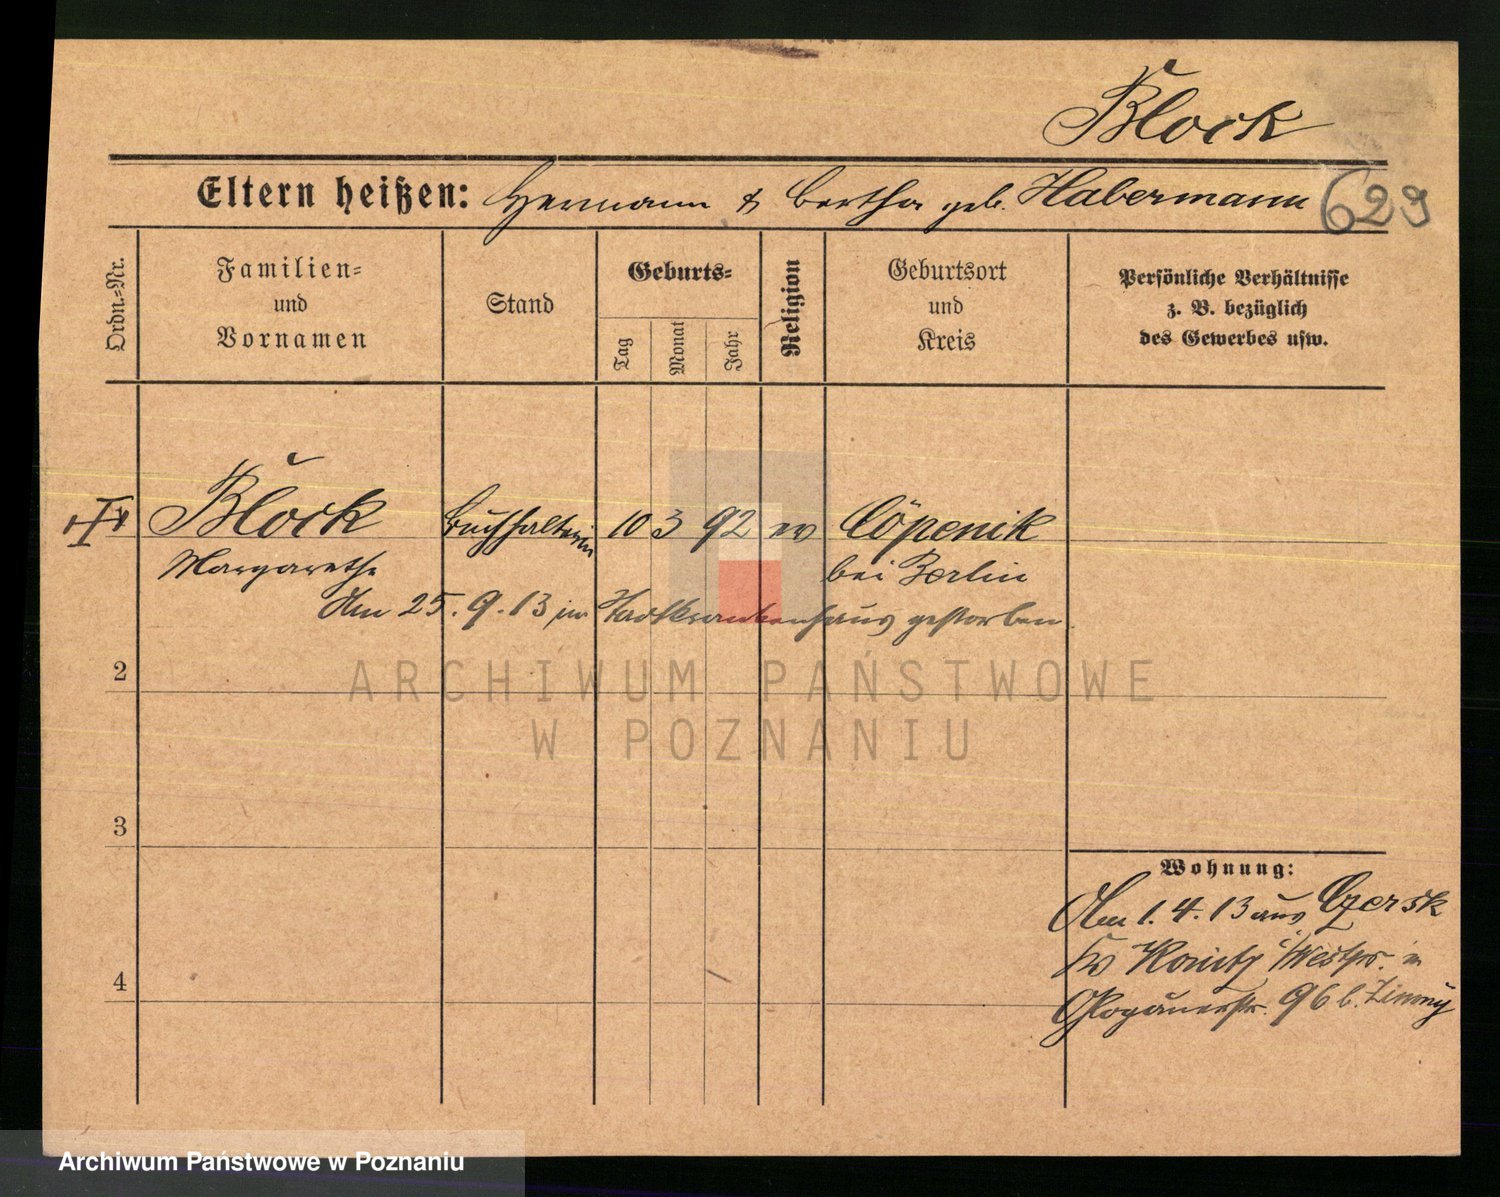 Block
Eltern heißen: Hermann & Bertha geb. Habermann 629
Ordn.=Nr.
Familien=
und
Vornamen
Stand
Geburts=
Tag
Monat
Jahr
Religion
Geburtsort
und
Kreis
Persönliche Verhältnisse
z. B. bezüglich
des Gewerbes usw.
Block Buchhalterin 10 3 92 ev Cöpenik
Margarethe bei Berlin
Am 25. 9. 13 im Stadtkrankenhaus gestorben.
2
3
4
Wohnung:
Am 1. 4. 13 aus Czersk
Kr Konitz i/Westpr. in
Glogauerstr. 96 b.
ARCHIWUM PAŃSTWOWE
W POZNANIU
Archiwum Państwowe w Poznaniu